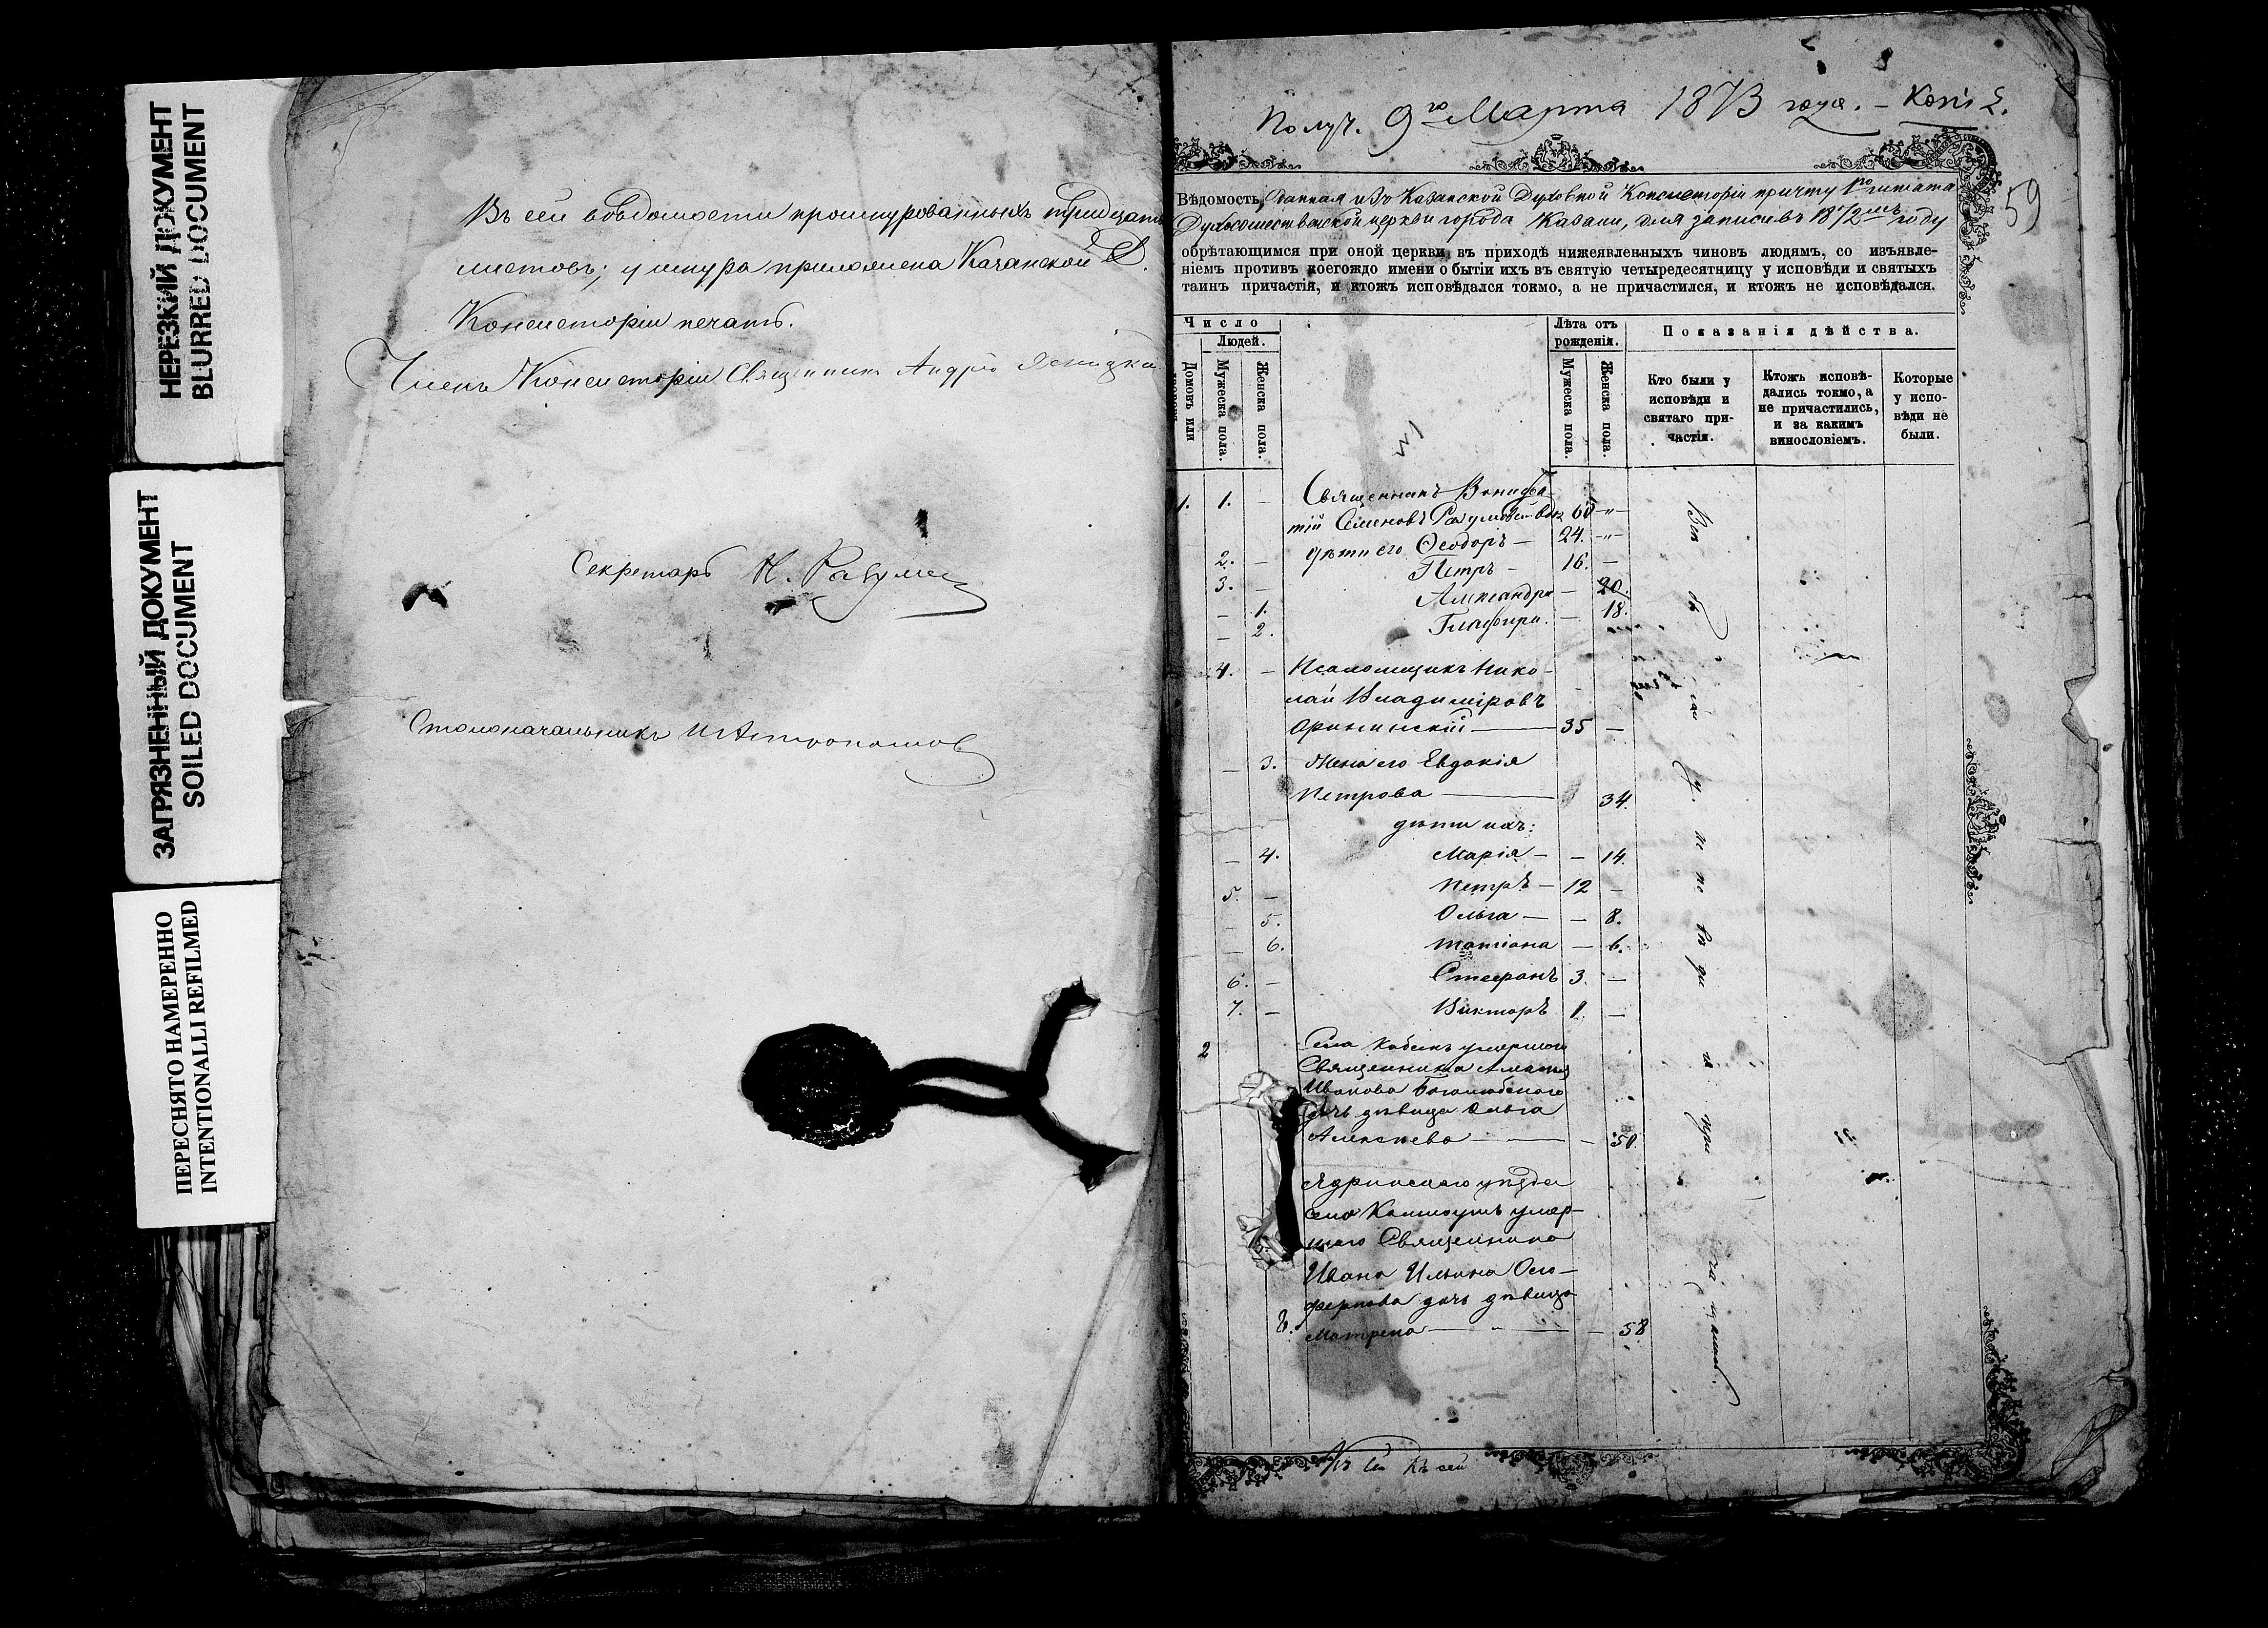 НЕРЕЗКИЙ ДОКУМЕНТ
BLURRED DOCUMENT
ЗАГРЯЗНЕННЫЙ ДОКУМЕНТ
SOILED DOCUMENT
ПЕРЕСНЯТО НАМЕРЕННО
INTENTIONALLI REFILMED
Въ сей вѣдомости прошнурованныхъ тридцать
листовъ; у шнура приложена Казанской Д.
Консисторіи печать.
Членъ Консисторіи Священникъ Андрей
Секретарь Н.
Столоначальникъ
Получ. 9го Марта 1873 года. –
59
Вѣдомость, данная изъ Казанской Духовной Консисторіи причту штата
Духосошественской церкви города Казани, для записи въ 1872мъ году
обрѣтающимся при оной церкви, въ приходѣ нижеявленныхъ чиновъ людямъ, со изъявле-
ніемъ противъ коегождо имени о бытіи ихъ въ святую четыредесятницу у исповѣди и святыхъ
таинъ причастія, и ктожъ исповѣдался токмо, а не причастился, и ктожъ не исповѣдался.
Число
Людей.
Домовъ или
Мужеска пола.
Женска пола.
Лѣта отъ
рожденія.
Мужеска пола.
Женска пола.
Показанія дѣйства.
Кто были у
исповѣди и
святаго при-
частія.
Ктожъ исповѣ-
дались токмо, а
не причастились,
и за какимъ
винословіемъ.
Которые
у испо-
вѣди не
были.
1. 1. – Священникъ
тій Семеновъ 60 – " –
2. – дѣти его Ѳеодоръ – 24. – " –
3. – Петръ – 16. –
– 1. Александра – 20.
– 2. Глафира. – 18.
4. – Псаломщикъ Нико-
лай Владиміровъ
35 –
– 3. Жена его Евдокія
Петрова 34.
дѣти ихъ:
– 4. Марія – – 14.
5. – Петръ – 12 –
– 5. Ольга – – 8.
– 6. Татіана – 6.
6. – Стефанъ 3. –
7. – Викторъ 1. –
2 Села умершаго
Священника Алексѣя
Иванова Боголюбскаго
дочь дѣвица Ольга
Алексѣева – 50.
Ядринскаго уѣзда
села умер-
шаго Священника
Ивана Ильина
дочь дѣвица
8. Матрена – 58
Всѣ сіи у исповѣди и при
Въ сей Въ сей